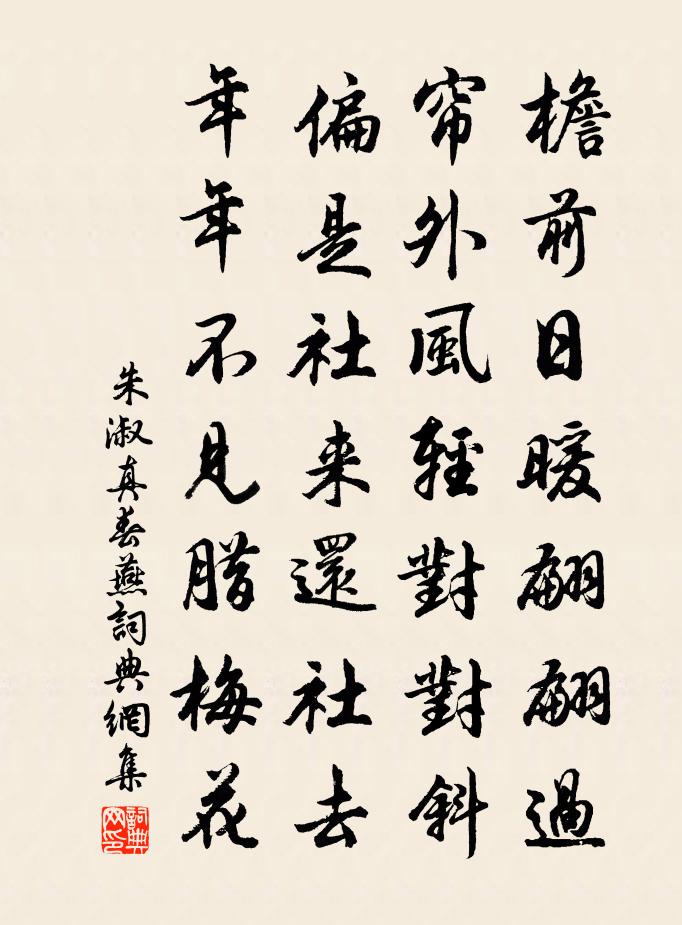 檐前日暖翩翩過
帘外風輕對對斜
偏是社来還社去
年年不見腊梅花
朱淑真春燕詞典網集
詞典网印